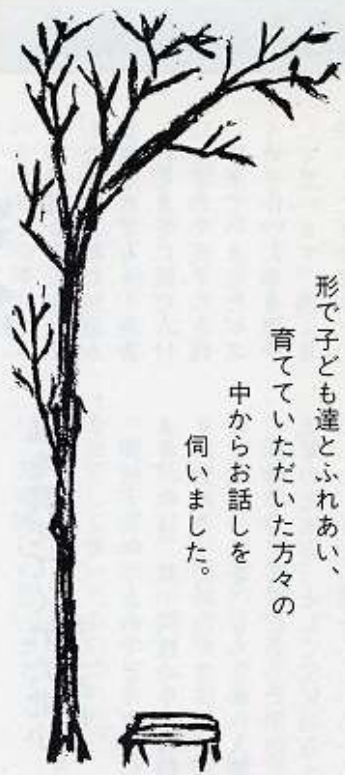 形で子ども達とふれあい、
育てていただいた方々の
中からお話しを
伺いました。